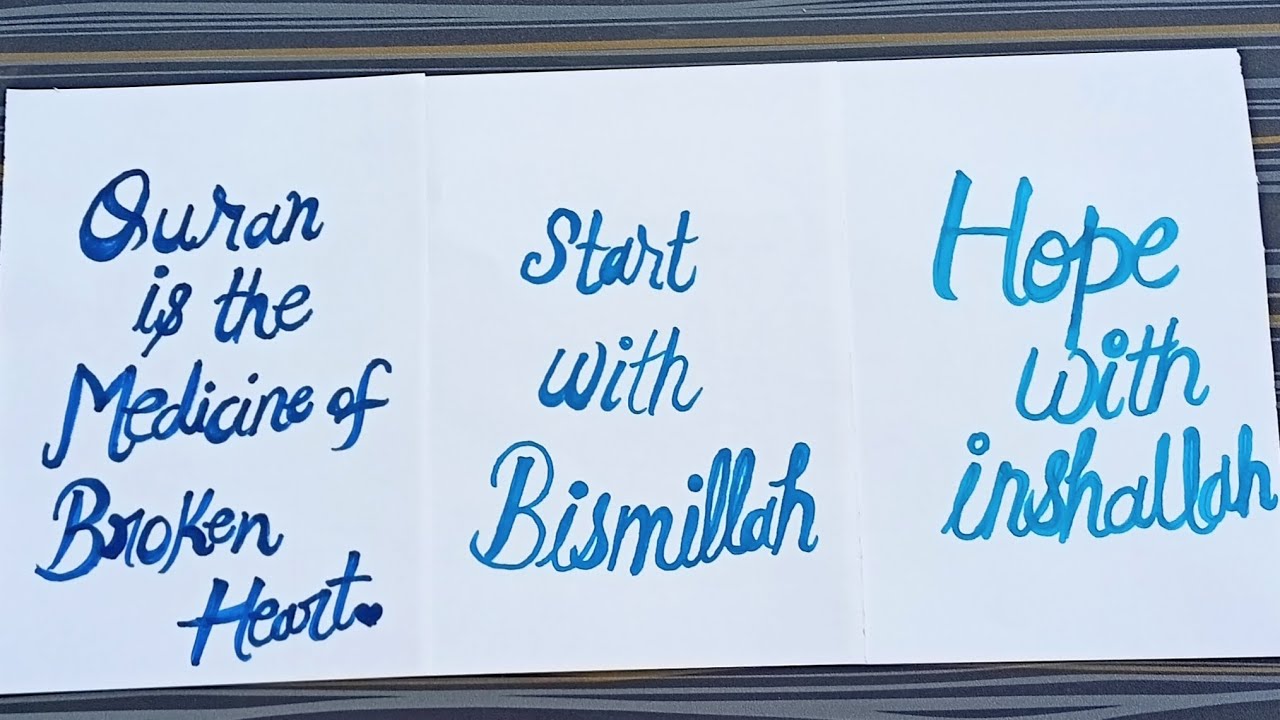 Quran
is the
Medicine of
Broken
Heart
Start
with
Bismillah
Hope
with
inshallah